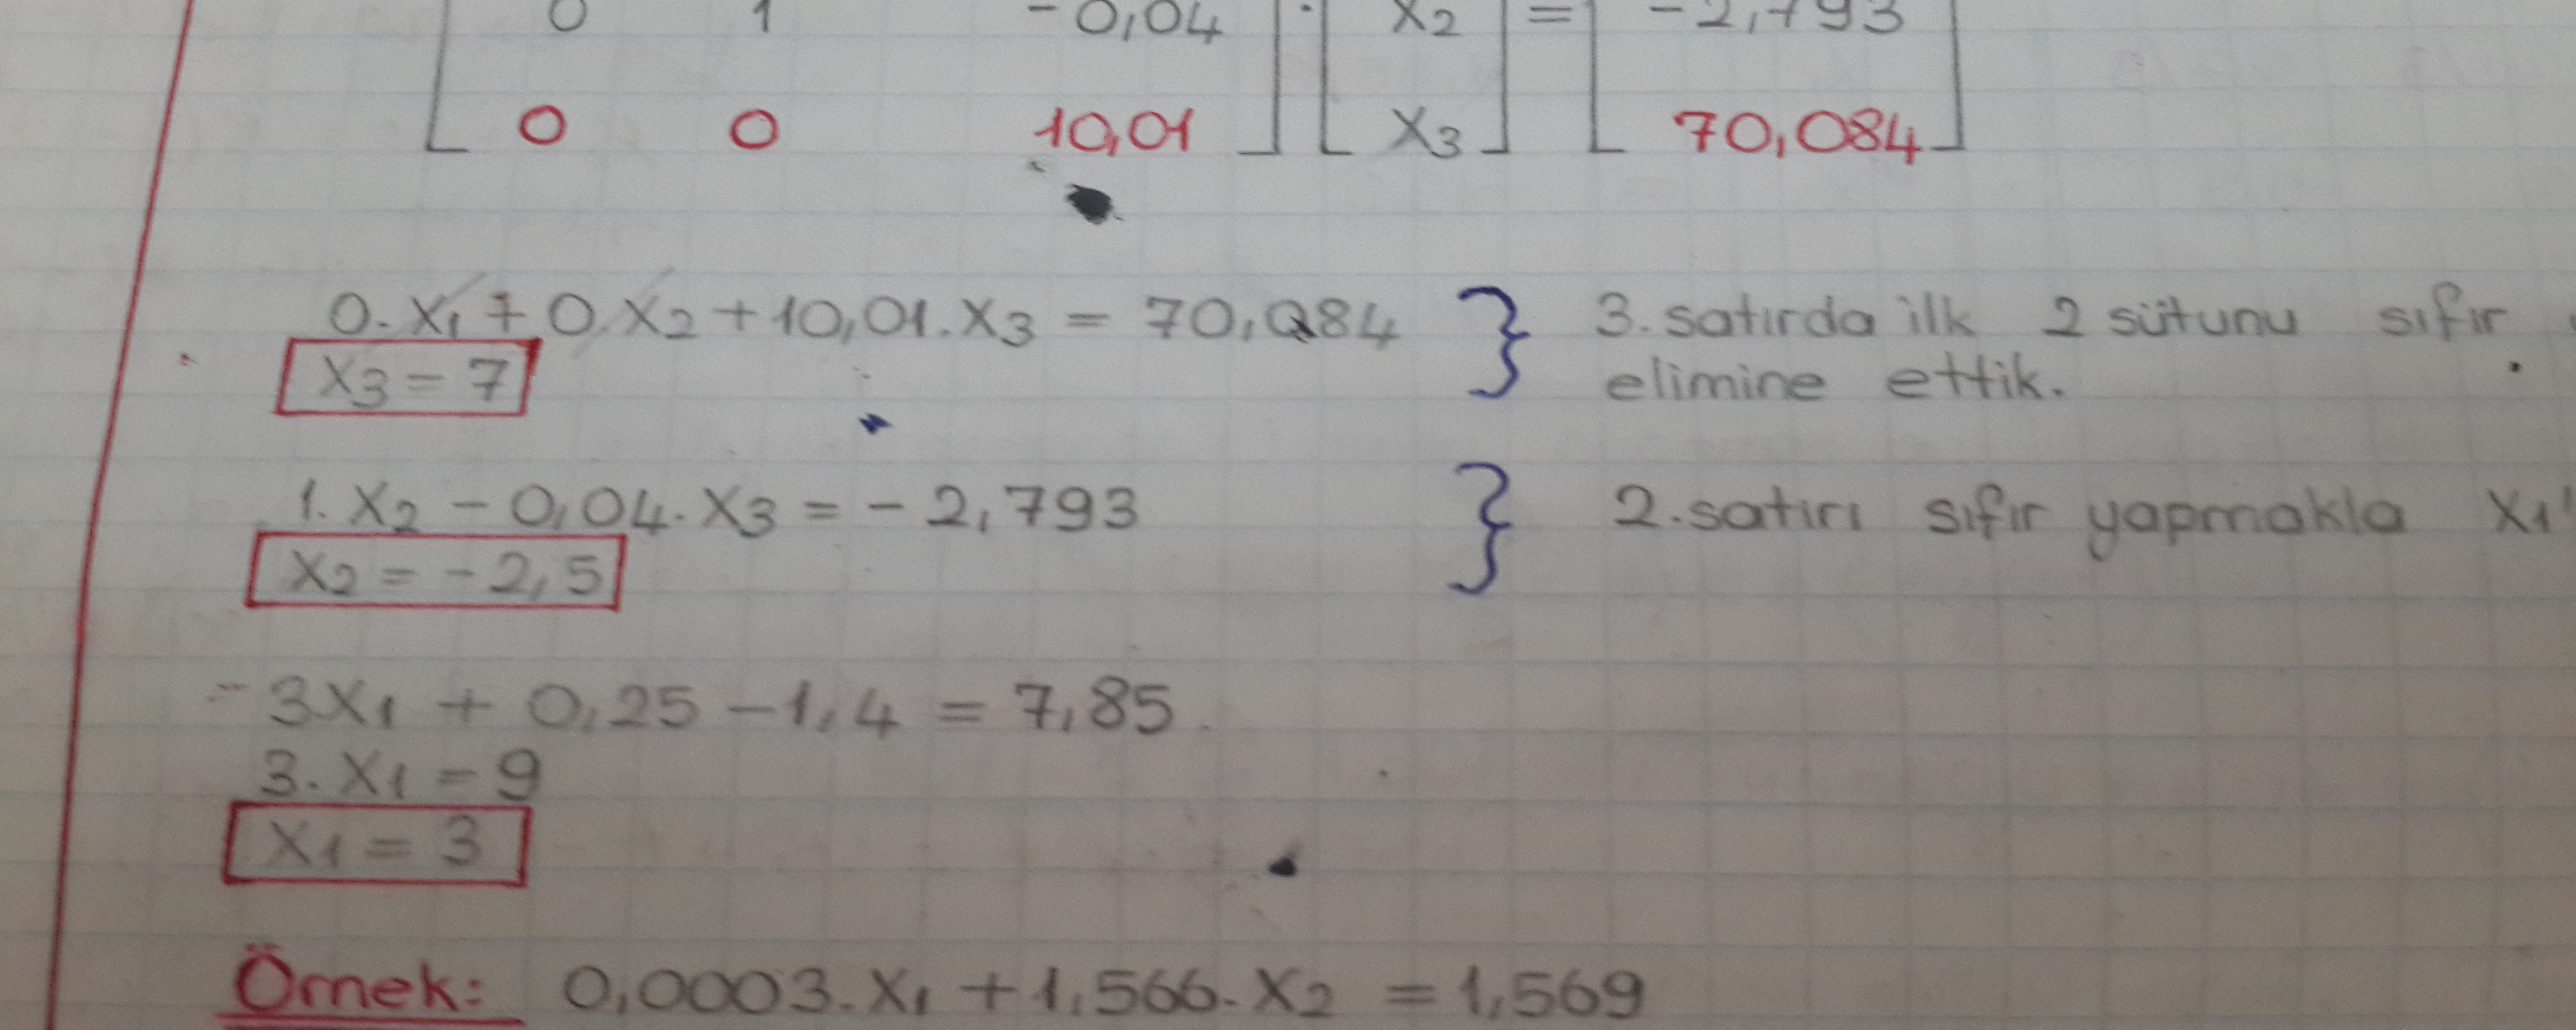 0 1 -0,04 . x2 = -2,793
0 0 10,01 x3 70,084
0.x1 + 0.x2 + 10,01.x3 = 70,084 } 3. satırda ilk 2 sütunu sıfır
x3 = 7 elimine ettik.
1.x2 - 0,04.x3 = -2,793 } 2.satırı sıfır yapmakla x1'
x2 = -2,5
3x1 + 0,25 - 1,4 = 7,85
3.x1 = 9
x1 = 3
Örnek: 0,0003.x1 + 1,566.x2 = 1,569